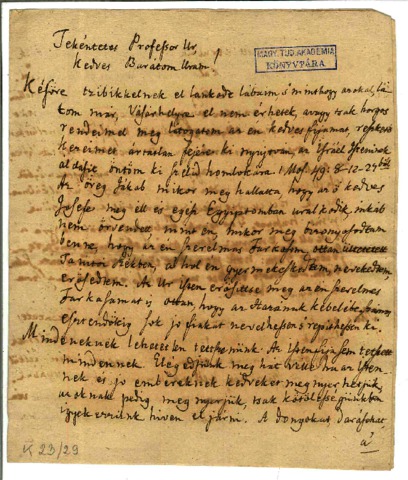 Tekéntetes Professor Ur
Kedves Barátom Uram!
MAGY. TUD. AKADEMIA
KÖNYVTÁRA
Késöre tzibikkelnek el lankadt lábaim s minthogy azokal, lá
tom már, Vásárhelyre el nem érhetek, avagy tsak horgas
rendeimel meg látogatom az én kedves fijamat, reszkető
kezeimet ártatlan fejére ki nyujtván, az Israel Istenének
áldásit öntöm ki homlokára. 1 Mos. 49. 8-12-24
Az öreg Jákab mikor meg hallotta hogy az ő kedves
Josefe meg él és egész Egyiptomban uralkodik, inkáb
nem örvendett mint én, mikor meg bizonyosodtam
benne, hogy az én szerelmes Farkasom ottan
Tanitó székben, a hol én gyermekeskedtem, nevekedtem,
erősödtem. Az Ur Isten erősittse meg az én szerelmes
Farkasamat is ottan hogy az Hazának kebelébe
esztendökig sok jo fiakat nevelhessen s repithessen ki.
Mindeneknek lehetetlen tettszenünk. Az Isten fija sem tettszett
mindennek. Elég édjünk meg hát vele ha az Iste
nek és jo embereknek kedveket meg nyerhessük,
azoknak pedig meg nyerjük, tsak kötelességünkben
igyekezzünk hiven el járni. A dongokat, darásokat
a'
K 23/29